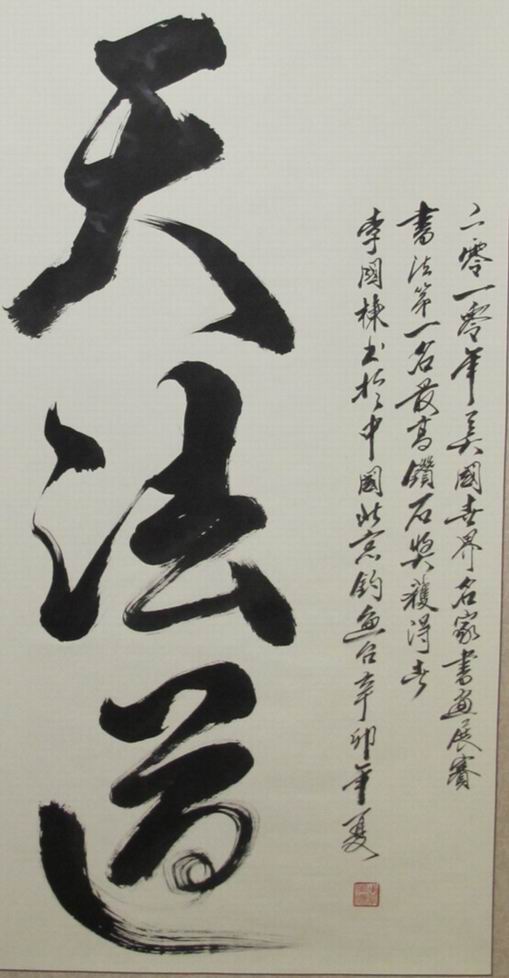 天法道
二零一零年美國世界名家書画展賽
書法第一名最高鑽石獎獲得者
李國棟书於中國北京钓鱼台辛卯年夏